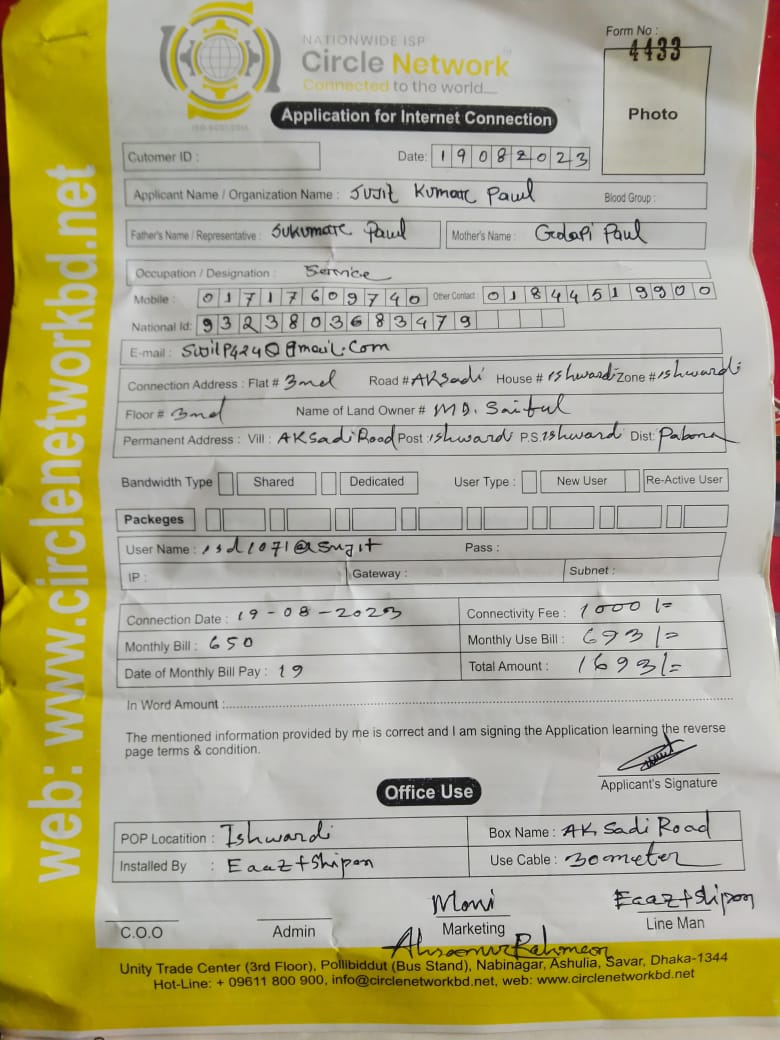 NATIONWIDE ISP
Circle Network
Connected to the world....
Form No :
4433
Photo
Application for Internet Connection
Cutomer ID :
Date: 19082023
Applicant Name / Organization Name : Sujit Kumar Paul
Blood Group :
Father's Name / Representative : Sukumar Paul
Mother's Name : Golapi Paul
Occupation / Designation : Service
Mobile : 01717609740 Other Contact : 01844519900
National Id: 9323803683479
E-mail :
Connection Address : Flat # 3nd Road # AKSadi House # ishwardi Zone # ishwardi
Floor # 3nd Name of Land Owner # MD. Saiful
Permanent Address : Vill : AKSadi Road Post : ishwardi P.S. ishwardi Dist: Pabna
Bandwidth Type Shared Dedicated User Type : New User Re-Active User
Packeges
User Name : isd1071@sujit Pass :
IP : Gateway : Subnet :
Connection Date : 19-08-2023 Connectivity Fee : 1000/=
Monthly Bill : 650 Monthly Use Bill : 693/=
Date of Monthly Bill Pay : 19 Total Amount : 1693/=
In Word Amount :
The mentioned information provided by me is correct and I am signing the Application learning the reverse
page terms & condition.
Applicant's Signature
Office Use
POP Locatition : Ishwardi Box Name : AK Sadi Road
Installed By : Eaaz+Shipon Use Cable : 30 meter
Moni Eaaz+Shipon
C.O.O Admin Marketing Line Man
Unity Trade Center (3rd Floor), Pollibiddut (Bus Stand), Nabinagar, Ashulia, Savar, Dhaka-1344
Hot-Line: + 09611 800 900, info@circlenetworkbd.net, web: www.circlenetworkbd.net
web: www.circlenetworkbd.net